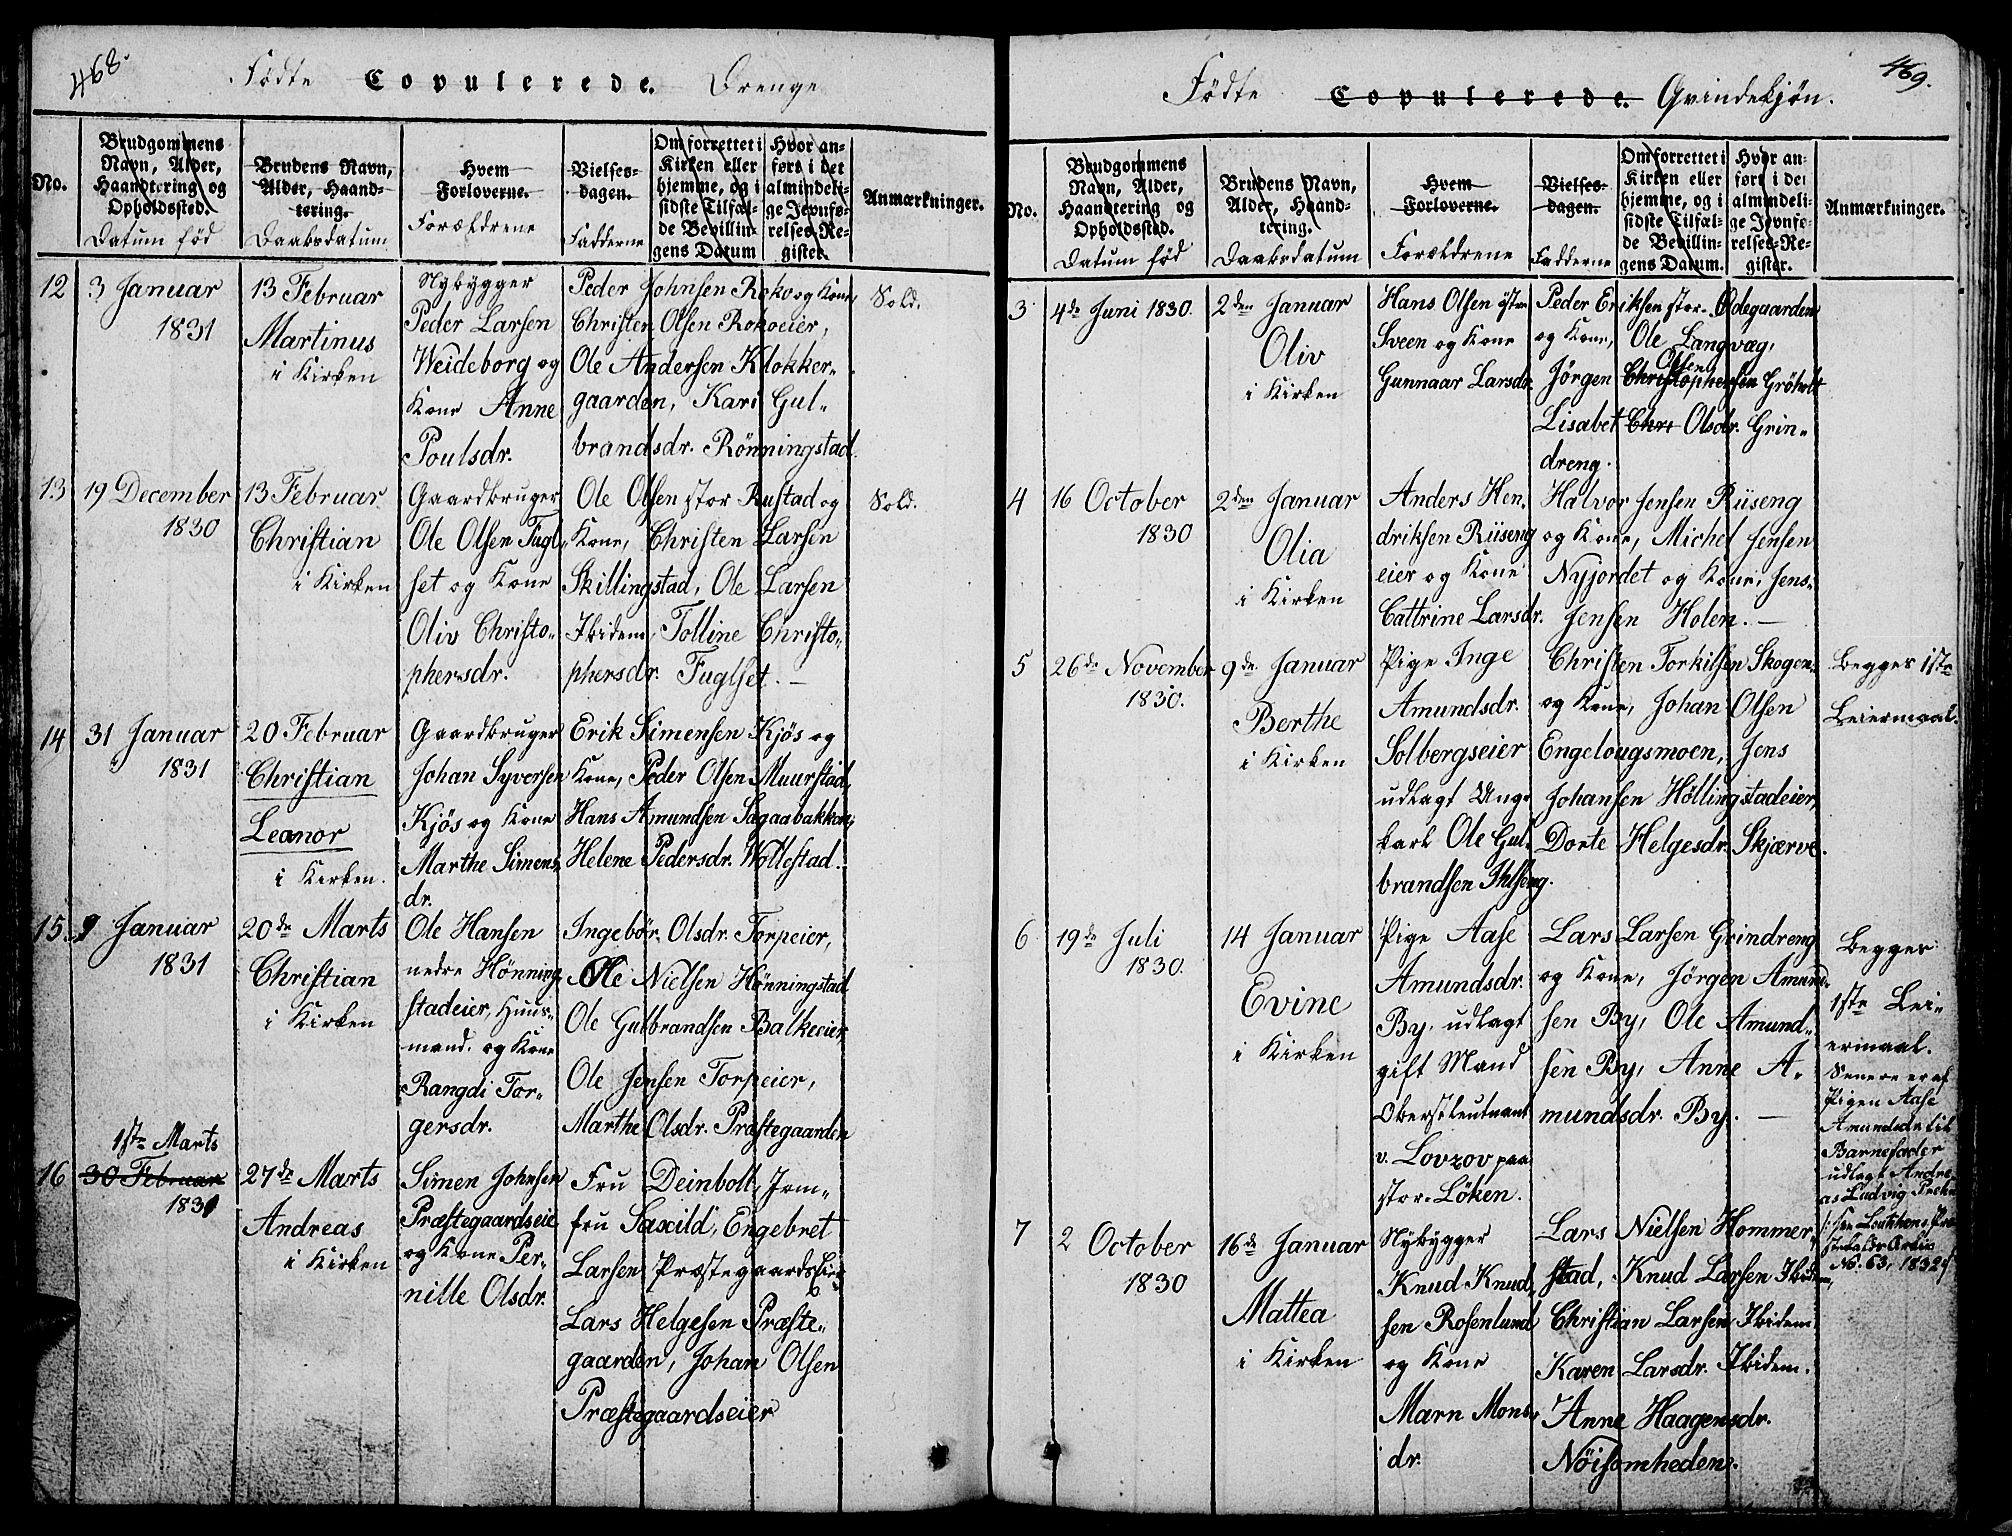 468.
Födte Copulerede. Drenge
No.
Brudgommens Navn, Alder, Haandtering og Opholdssted.
Datum fød
Brudens Navn, Alder, Haandtering.
Daabsdatum
Hvem Forloverne.
Forældrene
Vielses-dagen.
Fadderne
Om forrettet i Kirken eller hjemme, og i sidste Tilfælde Bevillingens Datum
Hvor anført i det almindelige Jevnførelses-Register.
Anmærkninger.
12
3 Januar
1831
13 Februar
Martinus
i Kirken
Nybygger
Peder Larsen
Weideborg og
Kone Anne
Poulsdr.
Peder Johnsen Roko og Kone
Christen Olsen Rokoeier,
Ole Andersen Klokker-
gaarden, Kari Gul-
brandsdr. Rønningstad.
Sold.
13
19 December
1830
13 Februar
Christian
i Kirken
Gaardbruger
Ole Olsen Fugl-
set og Kone
Oliv Christo-
phersdr.
Ole Olsen stor Rustad og
Kone, Christen Larsen
Skillingstad, Ole Larsen
Ibidem, Tolline Christo-
phersdr. Fuglset. —
Sold.
14
31 Januar
1831
20 Februar
Christian
Leanor
i Kirken.
Gaardbruger
Johan Syversen
Kjös og Kone
Marthe Simens
dr.
Erik Simensen Kjös og
Kone, Peder Olsen Muurstad,
Hans Amundsen Sagaabakken,
Helene Pedersdr. Wollestad.
15.
9 Januar
1831
20de Marts
Christian
i Kirken
Ole Hansen
nedre Hönning
stadeier, Huus-
mand. og Kone
Rangdi Tor-
gersdr.
Ingebör Olsdr. Torpeier,
Ole Nielsen Hönningstad
Ole Gulbrandsen Balkeeier
Ole Jensen Torpeier,
Marthe Olsdr. Præstegaarden
16
1ste Marts
30 Februar
1831
27de Marts
Andreas
i Kirken
Simen Johnsen
Præstegaardseie
og Kone Per-
nille Olsdr.
Fru Deinbolt, Jom-
fru Saxild, Engebret
Larsen Præstegaards
Lars Helgesen Præste-
gaarden, Johan Olsen
Præstegaardseier
469.
Födte Copulerede. Qvindekjøn.
No.
Brudgommens Navn, Alder, Haandtering og Opholdssted.
Datum fød
Brudens Navn, Alder, Haandtering.
Daabsdatum
Hvem Forloverne.
Forældrene
Vielses-dagen.
Fadderne
Om forrettet i Kirken eller hjemme, og i sidste Tilfælde Bevillingens Datum.
Hvor anført i det almindelige Jevnførelses-Register.
Anmærkninger.
3
4de Juni 1830.
2den Januar
Oliv
i Kirken
Hans Olsen östre
Sveen og Kone
Gunnaar Larsdr.
Peder Eriksen stor-Ödegaarden
og Kone, Ole Langvæg,
Olsen
Jörgen Christophersen Gröholt
Lisabet Chri Olsdr. Grin-
dreng.
4
16 October
1830
2den Januar
Olia
i Kirken
Anders Hen
driksen Riiseng
eier og Kone
Cattrine Larsdr.
Halvor Jensen Riiseng
og Kone, Michel Jensen
Nyjordet og Kone, Jens-
Jensen Holen. —
5
26de November
1830.
9de Januar
Berthe
i Kirken
Pige Inge
Amundsdr.
Solbergseier
udlagt Ung-
karl Ole Gul
brandsen Ihlseng.
Christen Torkilsen Skogen
og Kone, Johan Olsen
Engelougsmoen, Jens
Johansen Höllingstadeier,
Dorte Helgesdr. Skjærve.
Begges 1ste
Leiermaal.
6
19de Juli
1830.
14 Januar
Evine
i Kirken
Pige Aase
Amundsdr.
By. udlagt
gift Mand
Oberstleutnant
v. Lovzov paa
stor-Löken.
Lars Larsen Grindreng
og Kone, Jörgen Amund-
sen By, Ole Amund-
sen By, Anne A-
mundsdr. By. —
Begges
1ste Lei-
ermaal.
Senere er af
Pigen Aase
Amundsdr til
Barnefader
udlagt Andre-
as Ludvig
No. 63, 1832
7
2 October
1830
16de Januar
Mattea
i Kirken
Nybygger
Knud Knud-
sen Rosenlund
og Kone
Marn Mons-
dr.
Lars Nielsen Hommer-
stad, Knud Larsen Ibidem,
Christian Larsen Ibidem
Karen Larsdr. Ibidem.
Anne Haagensdr.
Nöisomheden.